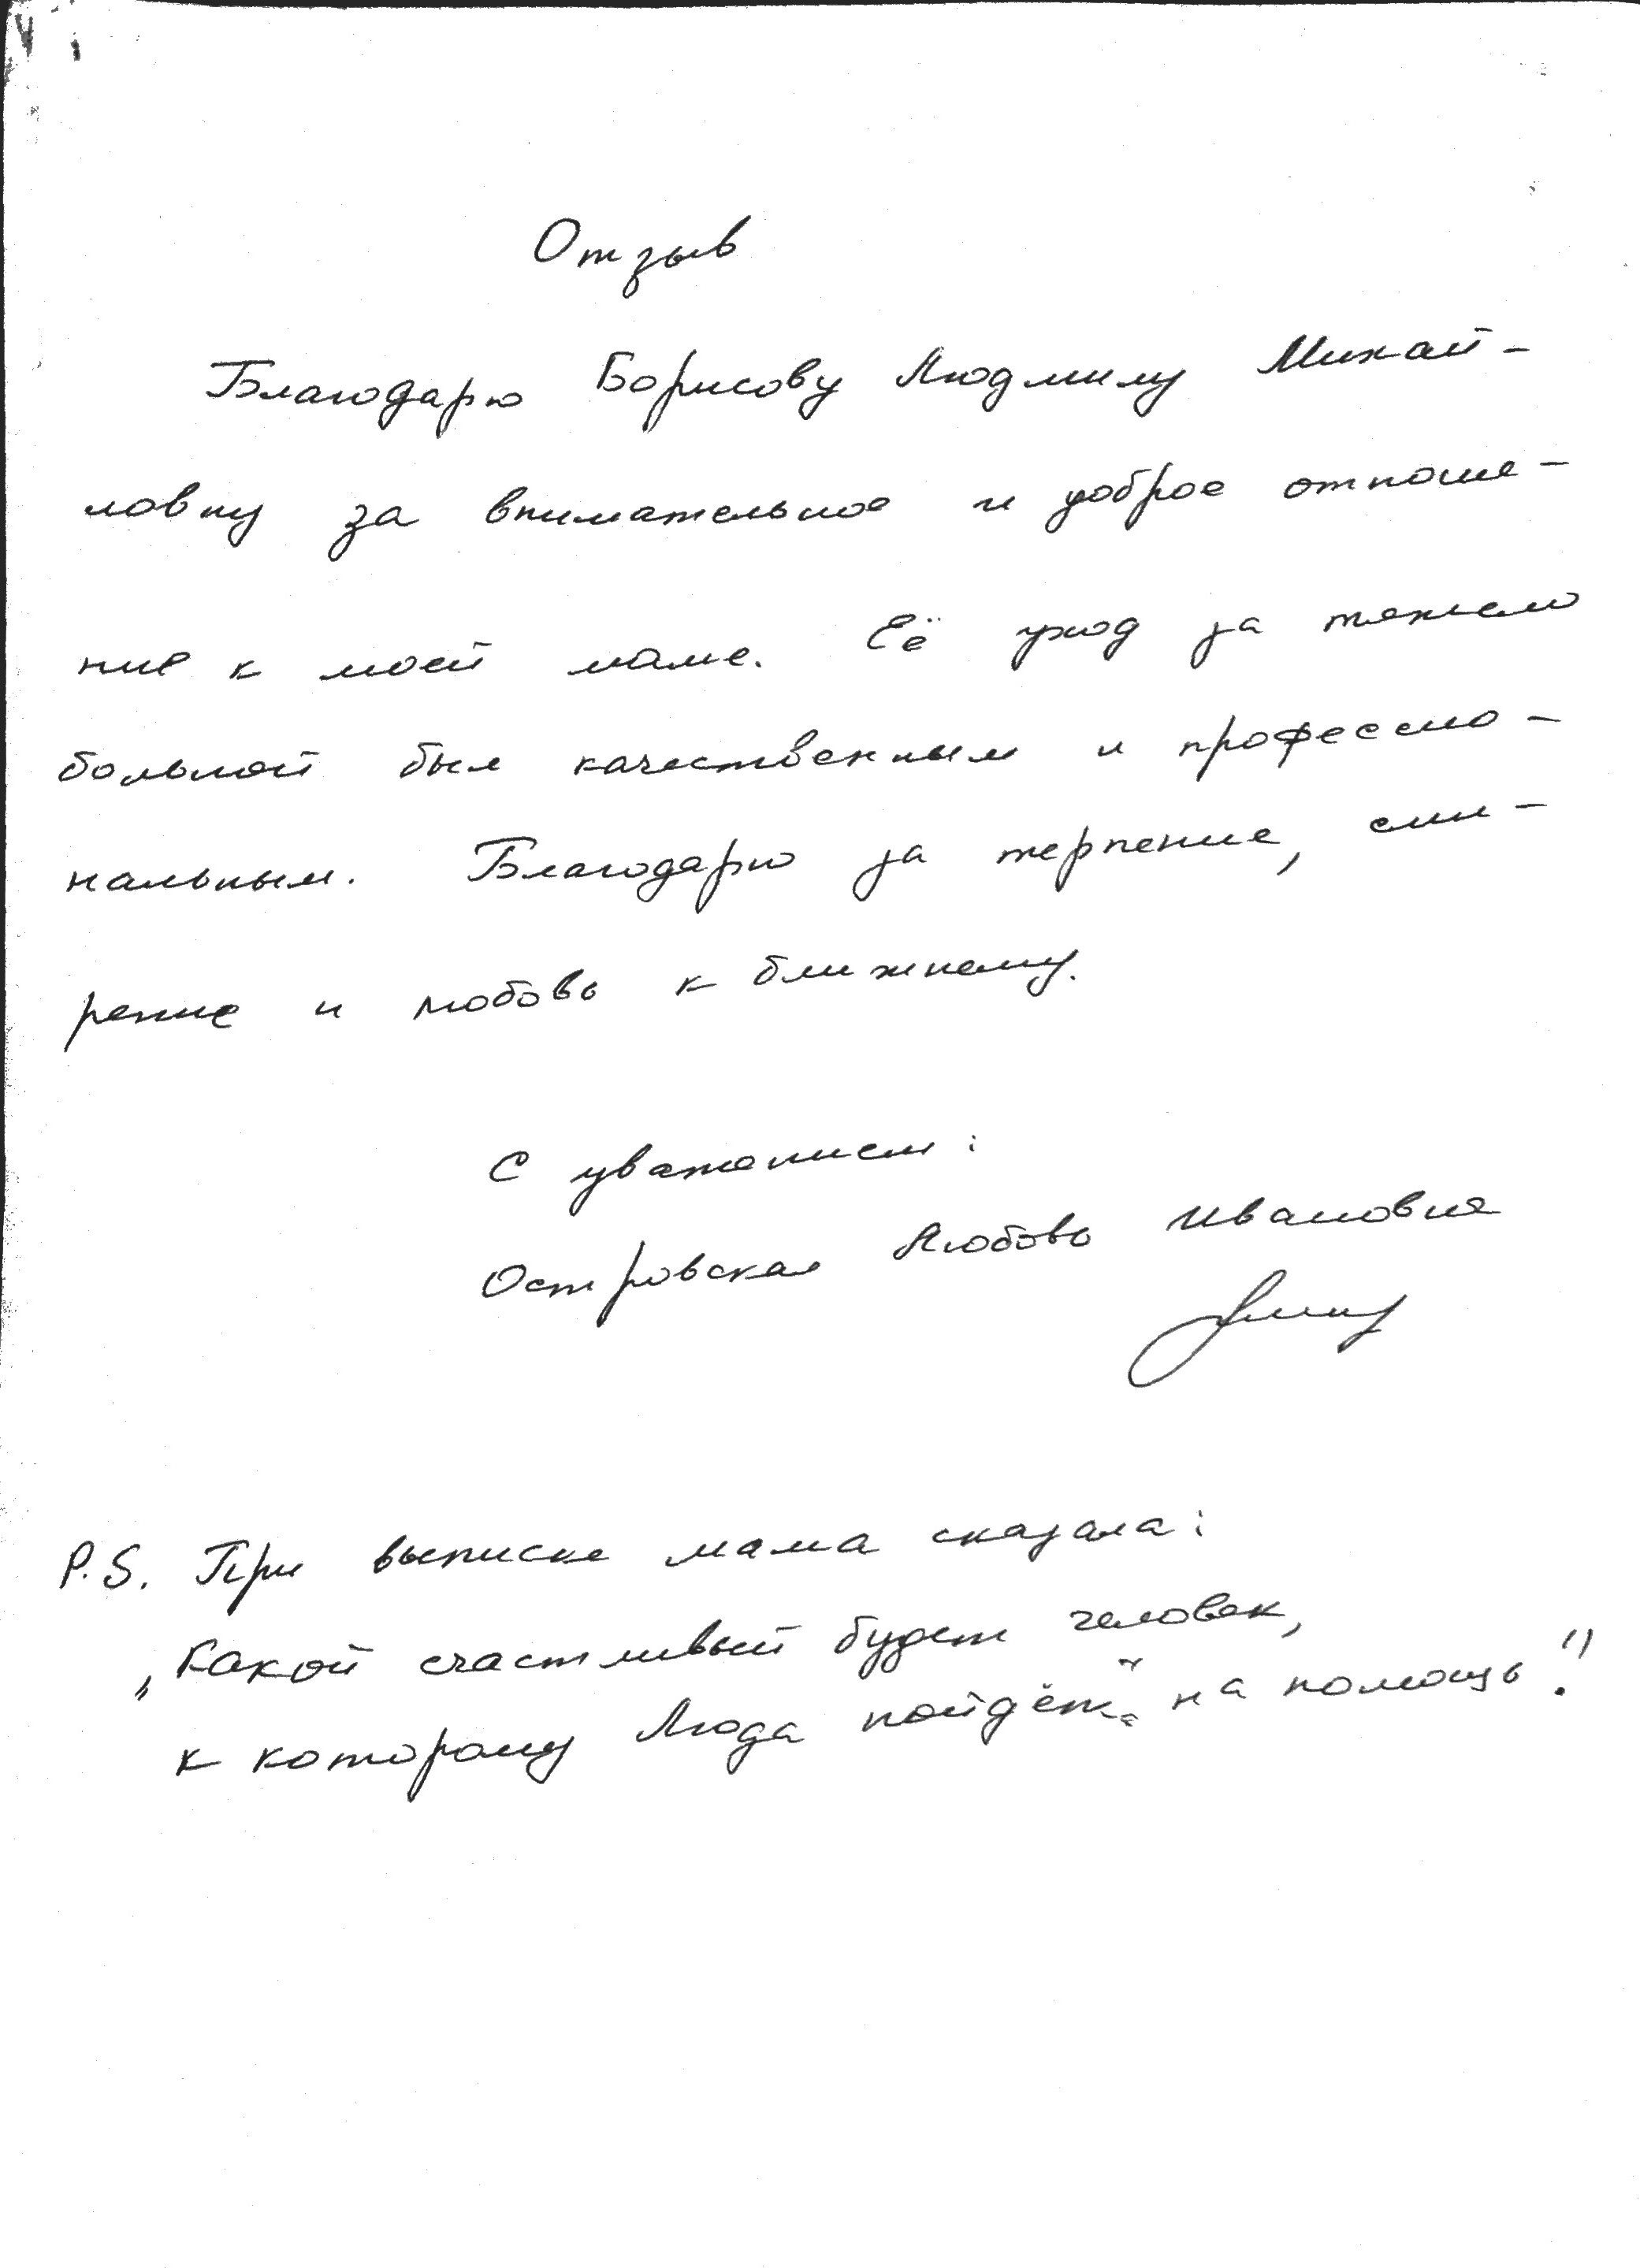 Отзыв
Благодарю Борисову Людмилу Михай-
ловну за внимательное и доброе отноше-
ние к моей маме. Её уход за тяжело
больной был качественным и профессио-
нальным. Благодарю за терпение, сми-
рение и любовь к ближнему.
С уважением:
Островская Любовь Ивановна
P.S. При выписке мама сказала:
„Какой счастливый будет человек,
к которому Люда пойдёт на помощь!"